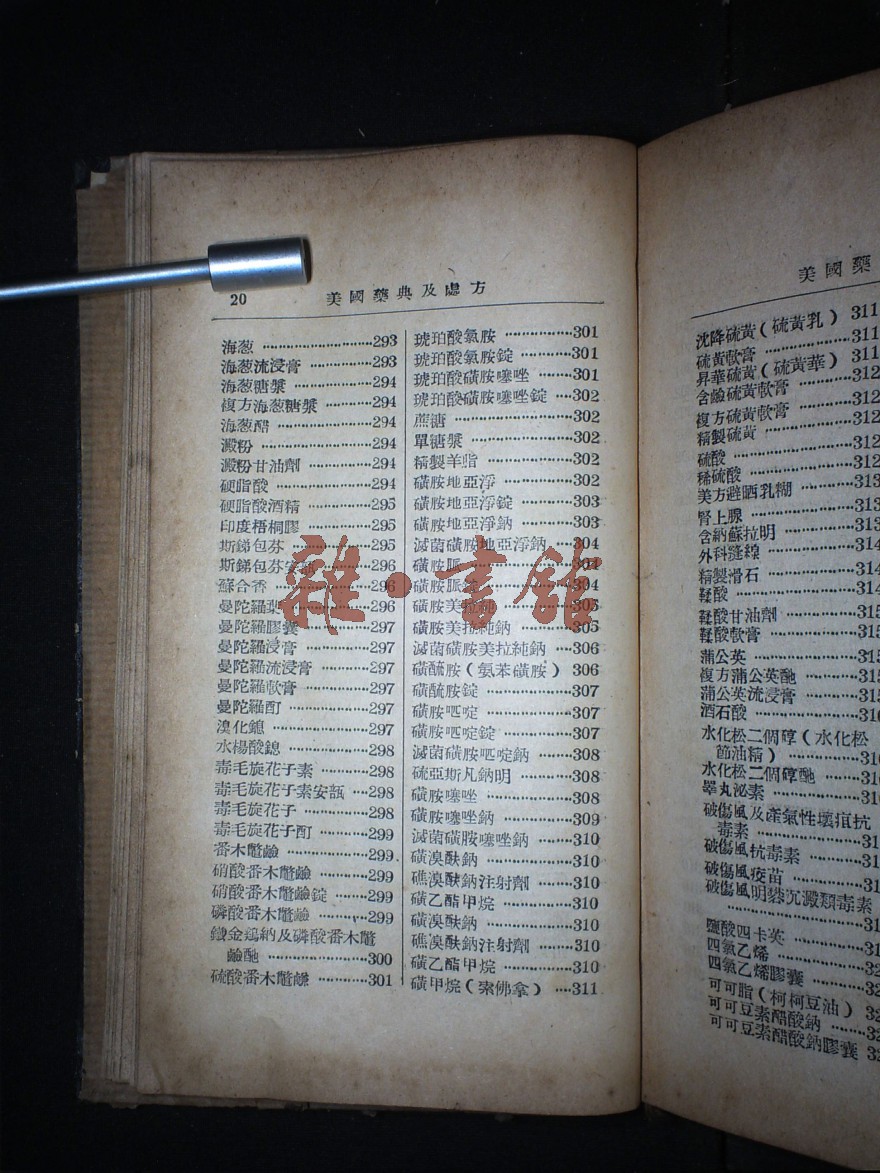 20
美國藥典及處方
海葱 293
海葱流浸膏 293
海葱糖漿 294
複方海葱糖漿 294
海葱醋 294
澱粉 294
澱粉甘油劑 294
硬脂酸 294
硬脂酸酒精 295
印度梧桐膠 295
斯銻包芬 295
斯銻包芬安瓿 296
蘇合香 296
曼陀羅 296
曼陀羅膠囊 297
曼陀羅浸膏 297
曼陀羅流浸膏 297
曼陀羅軟膏 297
曼陀羅酊 297
溴化鎴 297
水楊酸鎴 298
毒毛旋花子素 298
毒毛旋花子素安瓿 298
毒毛旋花子 298
毒毛旋花子酊 299
番木鼈鹼 299
硝酸番木鼈鹼 299
硝酸番木鼈鹼錠 299
磷酸番木鼈鹼 299
鐵金鷄納及磷酸番木鼈
鹼酏 300
硫酸番木鼈鹼 301
琥珀酸氯胺 301
琥珀酸氯胺錠 301
琥珀酸磺胺噻唑 301
琥珀酸磺胺噻唑錠 302
蔗糖 302
單糖漿 302
精製羊脂 302
磺胺地亞淨 302
磺胺地亞淨錠 303
磺胺地亞淨鈉 303
滅菌磺胺地亞淨鈉 304
磺胺脈 304
磺胺脈錠 304
磺胺美拉純 305
磺胺美拉純鈉 305
滅菌磺胺美拉純鈉 306
磺醯胺（氨苯磺胺） 306
磺醯胺錠 307
磺胺吡啶 307
磺胺吡啶錠 307
滅菌磺胺吡啶鈉 308
硫亞斯凡鈉明 308
磺胺噻唑 308
磺胺噻唑鈉 309
滅菌磺胺噻唑鈉 310
磺溴酞鈉 310
磺溴酞鈉注射劑 310
磺乙酯甲烷 310
磺溴酞鈉 310
磺溴酞鈉注射劑 310
磺乙酯甲烷 310
磺甲烷（索佛拿） 311
美國藥
沈降硫黃（硫黃乳） 311
硫黃軟膏 311
昇華硫黃（硫黃華） 311
含鹼硫黃軟膏 312
複方硫黃軟膏 312
精製硫黃 312
硫酸 312
稀硫酸 312
美方避晒乳糊 313
腎上腺 313
含納蘇拉明 313
外科縫線 313
精製滑石 314
鞣酸 314
鞣酸甘油劑 315
鞣酸軟膏 315
蒲公英 315
複方蒲公英酏 315
蒲公英流浸膏 315
酒石酸
水化松二個醇（水化松
節油精）
水化松二個醇酏
睾丸泌素
破傷風及產氣性壞疽抗
毒素
破傷風抗毒素
破傷風疫苗
破傷風明礬沉澱類毒素
鹽酸四卡英
四氯乙烯
四氯乙烯膠囊
可可脂（柯柯豆油）
可可豆素醋酸鈉
可可豆素醋酸鈉膠囊
雜·書館